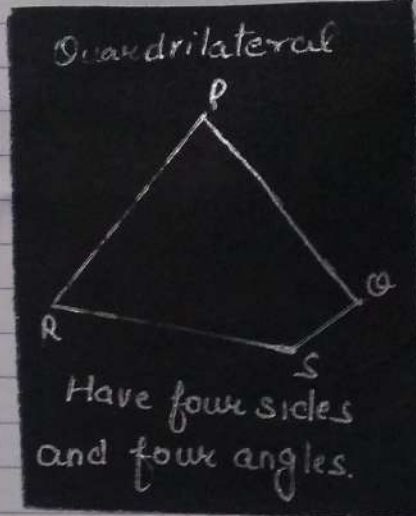 Quardrilateral
P
Q
R
S
Have four sides
and four angles.